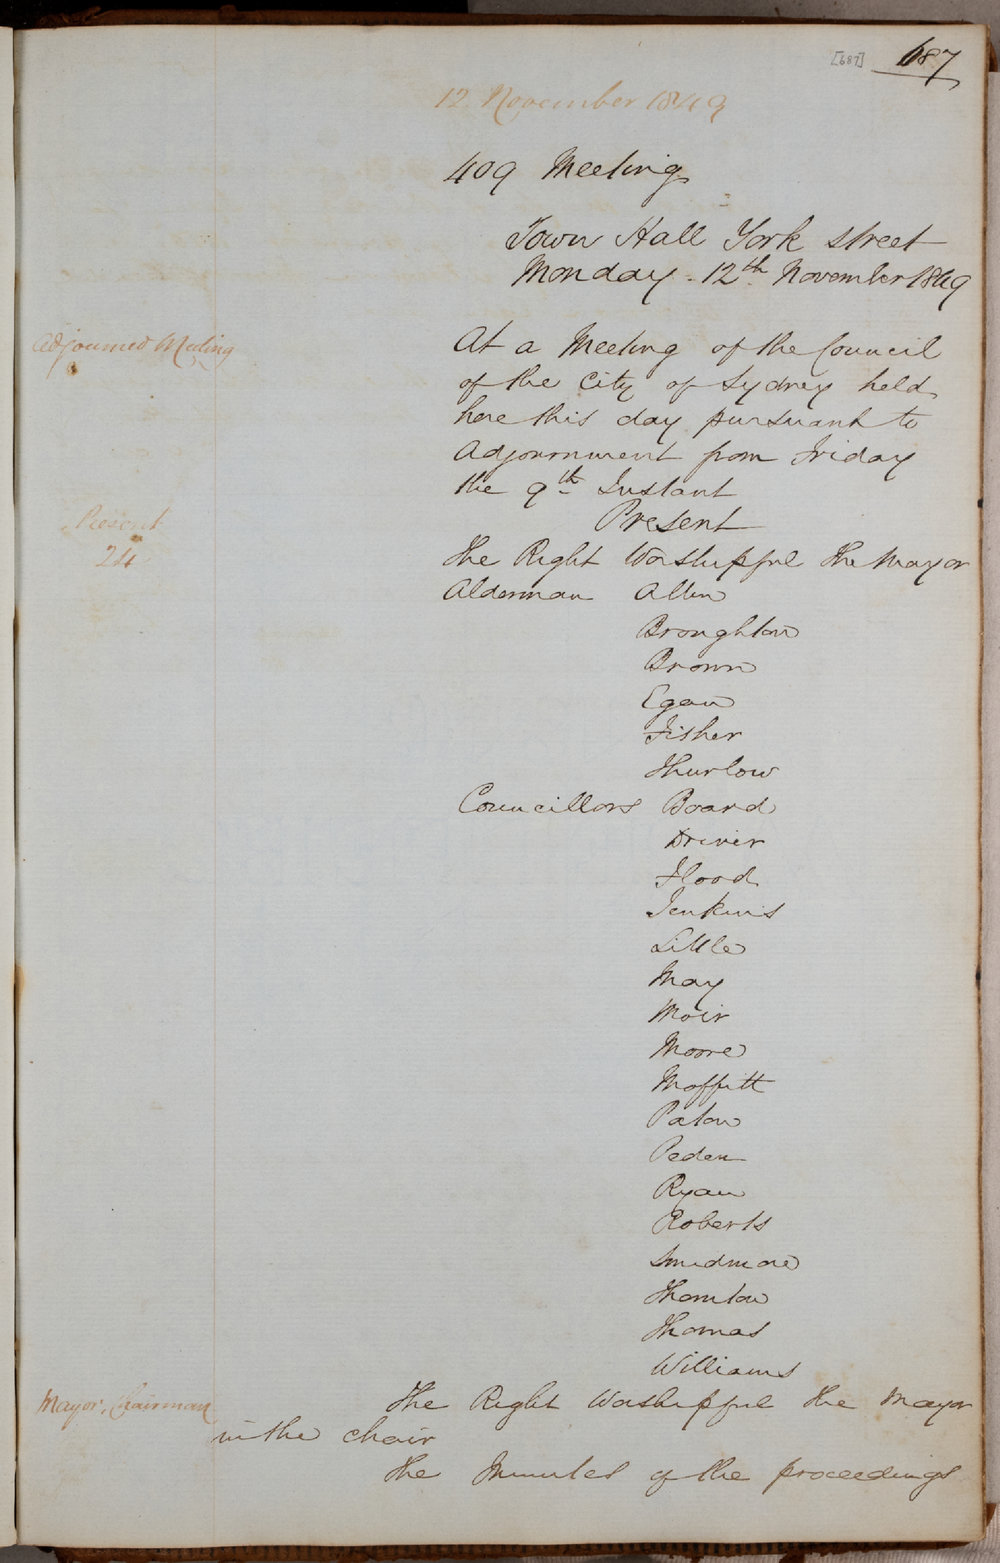 [687] 687
12 November 1849
409 Meeting
Town Hall York street
Monday. 12th November 1849
Adjourned Meeting
At a Meeting of the Council
of the City of Sydney held
here this day pursuant to
Adjournment from Friday
the 9th Instant
Present
24
Present
The Right Worshipful the Mayor
Alderman Allen
Broughton
Brown
Egan
Fisher
Thurlow
Councillors Board
Driver
Flood
Jenkins
Little
May
Moir
Moore
Moffitt
Paton
Peden
Ryan
Roberts
Smidmore
Thornton
Thomas
Williams
Mayor, Chairman
The Right Worshipful the Mayor
in the chair
The Minutes of the proceedings